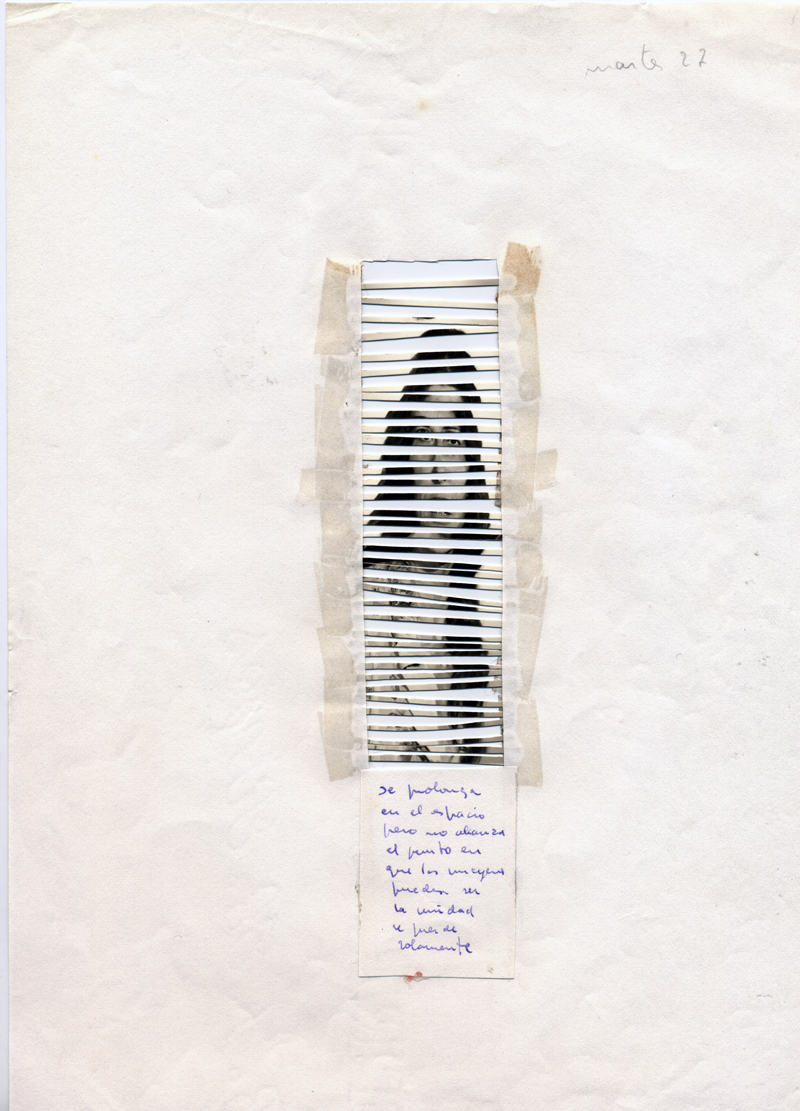 martes 27
se prolonga
en el espacio
pero no alcanza
el punto en
que las imagenes
pueden ser
la unidad
se pierde
solamente